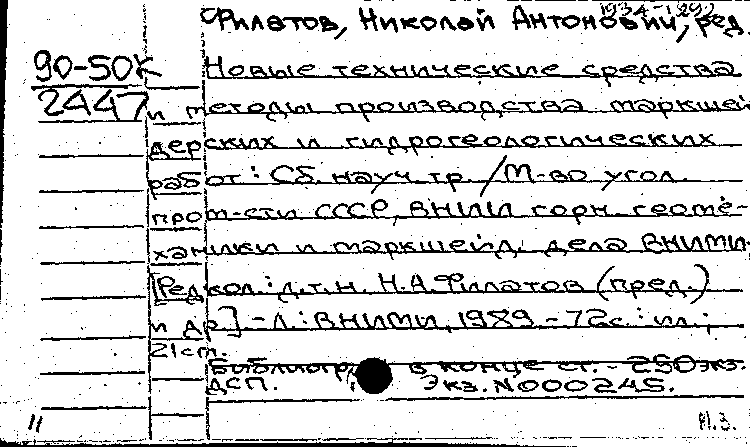 Филатов, Николай Антонович, ред.
90-50К
2447
Новые технические средства
и методы производства маркшей
дерских и гидрогеологических
работ : Сб. науч. тр. / М-во угол.
пром-сти СССР, ВНИИ горн. геоме-
ханики и маркшейд. дела ВНИМИ;
[Редкол.: д.т.н. Н.А. Филатов (пред.)
и др.]. - Л. : ВНИМИ, 1989 - 72с. : ил.;
21 cm.
Библиогр. в конце ст. - 250 экз.
ДСП. Экз. N000245.
11